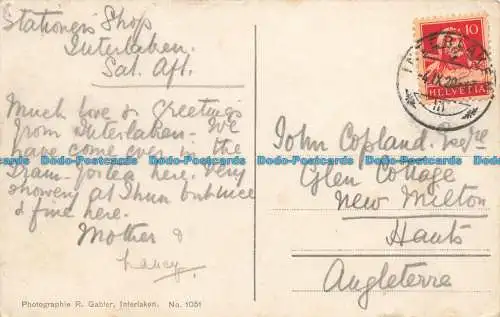 Stationers Shop
Interlaken.
Sat. Aft.
Much love & greetings
from Interlaken. We
have come over in the
for tea here. Very
showery at Thun but nice
& fine here.
Mother &
Photographie R. Gabler, Interlaken. No. 1051
10
HELVETIA
INTERLAKEN
John Copland. Esqre
Glen Cottage
New Milton
Hants
Angleterre
Dodo-Postcards Dodo-Postcards Dodo-Postcards Dodo-Postcards Dodo-Postcards